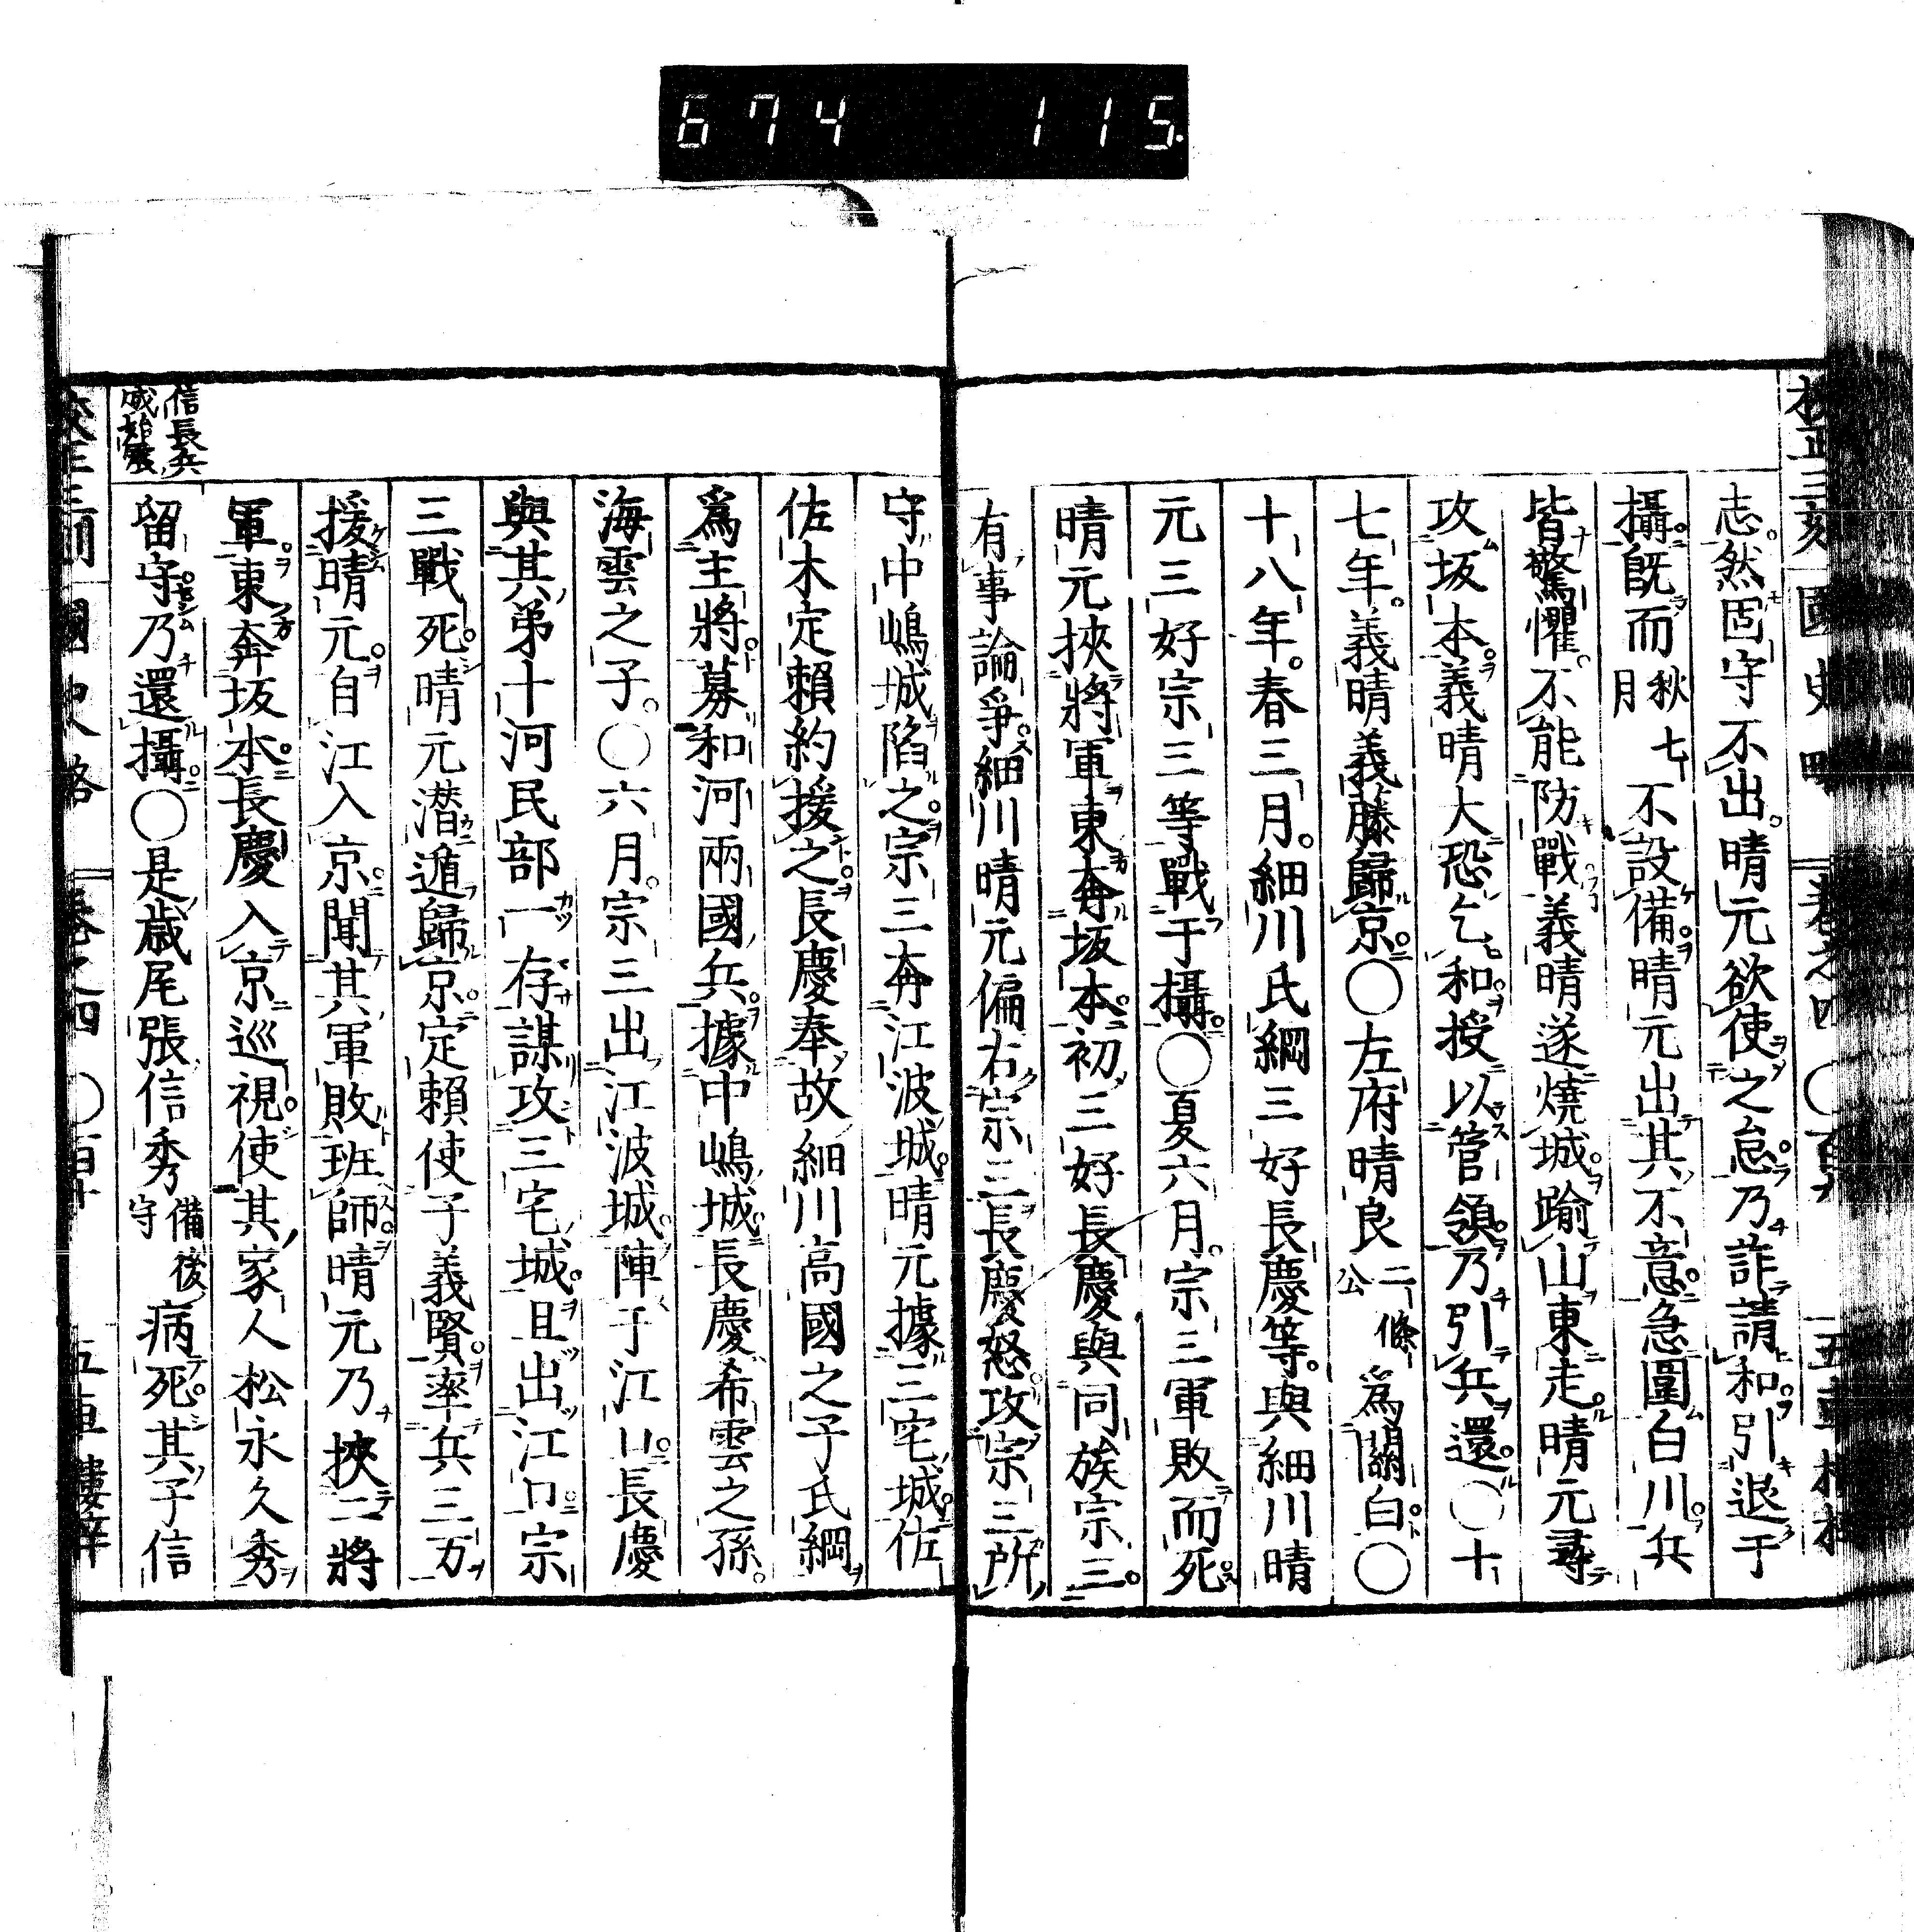 674 115.
校正三刻 國史略 卷之四 ○ 五車樓梓
志然固守不出晴元欲使之怠乃詐請和引退于
攝既而秋七月不設備晴元出其不意急圍白川兵
皆驚懼不能防戰義晴遂燒城踰山東走晴元尋
攻坂本義晴大恐乞和授以管領乃引兵還○十
七年義晴義藤歸京○左府晴良二條公爲關白○
十八年春三月細川氏綱三好長慶等與細川晴
元三好宗三等戰于攝○夏六月宗三軍敗而死
晴元挾將軍東奔坂本初三好長慶與同族宗三
有事論爭細川晴元偏右宗三長慶怒攻宗三所
守中嶋城陷之宗三奔江波城晴元據三宅城佐
佐木定賴約援之長慶奉故細川高國之子氏綱
爲主將募和河兩國兵據中嶋城長慶希雲之孫
海雲之子○六月宗三出江波城陣于江口長慶
與其弟十河民部一存謀攻三宅城且出江口宗
三戰死晴元潛遁歸京定賴使子義賢率兵三万
援晴元自江入京聞其軍敗班師晴元乃挾二將
軍東奔坂本長慶入京巡視使其家人松永久秀
留守乃還攝○是歲尾張信秀備後守病死其子信
信長兵威始震
校正三刻 國史略 卷之四 五車樓梓